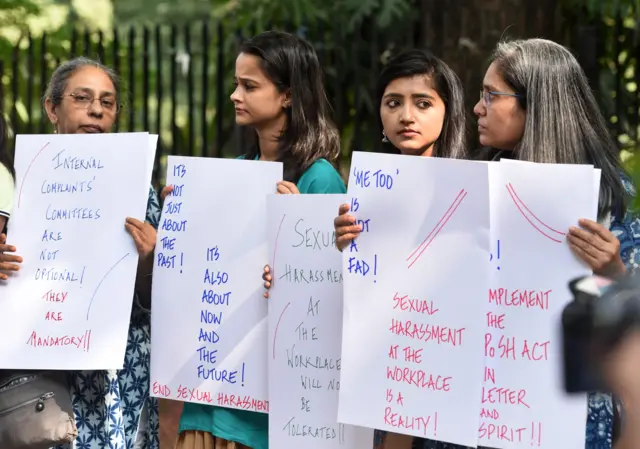 INTERNAL
COMPLAINTS'
COMMITTEES
ARE
NOT
OPTIONAL!
THEY
ARE
MANDATORY!!
ITS
NOT
JUST
ABOUT
THE
PAST!
ITS
ALSO
ABOUT
NOW
AND
THE
FUTURE!
END SEXUAL HARASSMENT
HARASSMENT
AT
THE
WORKPLACE
WILL
BE
TOLERATED!!
'ME TOO'
IS
A
FAD!
SEXUAL
HARASSMENT
AT THE
WORKPLACE
IS A
REALITY!
!
THE
POSH ACT
IN
LETTER
AND
SPIRIT!!